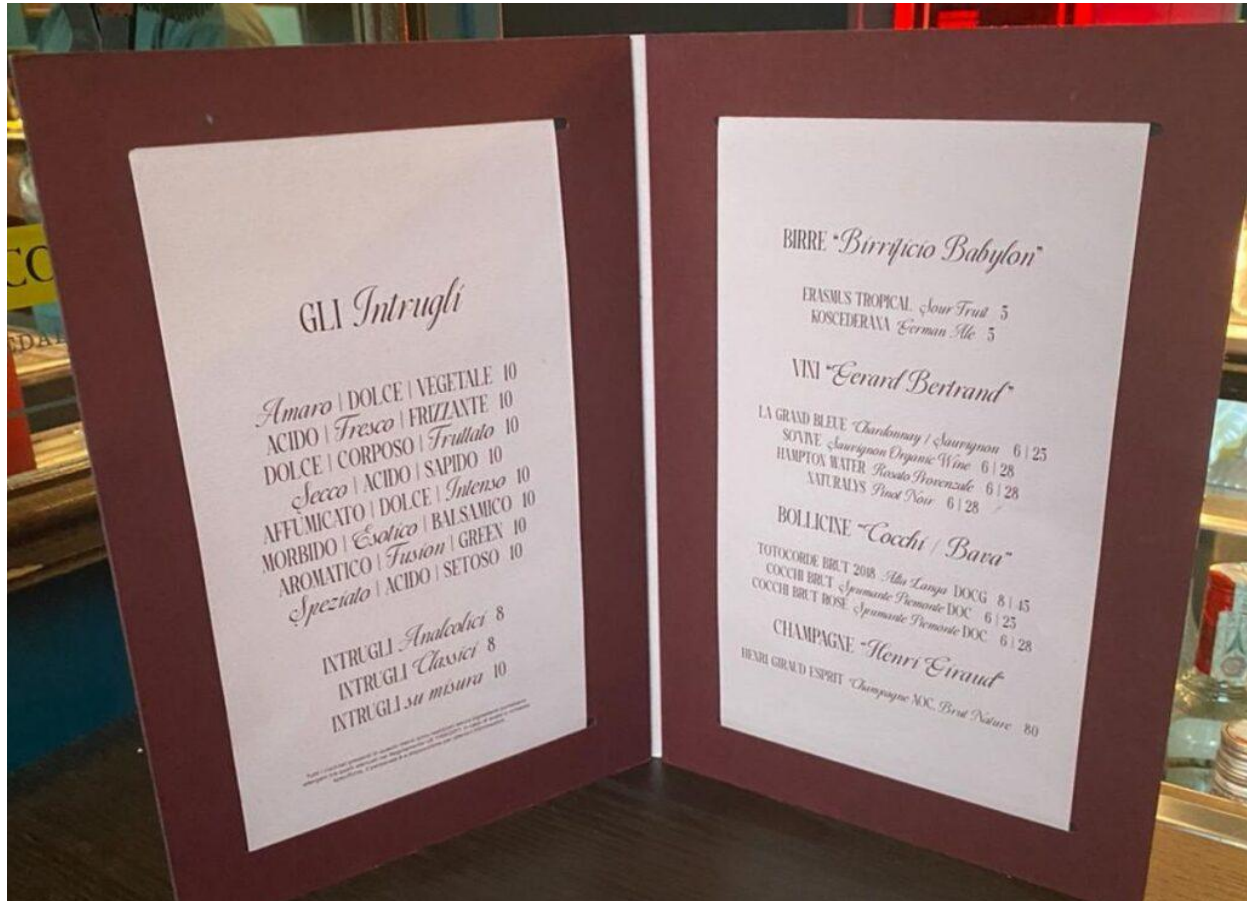 GLI Intrugli
Amaro | DOLCE | VEGETALE 10
ACIDO | Fresco | FRIZZANTE 10
DOLCE | CORPOSO | Fruttato 10
Secco | ACIDO | SAPIDO 10
AFFUMICATO | DOLCE | Intenso 10
MORBIDO | Esotico | BALSAMICO 10
AROMATICO | Fusion | GREEN 10
Speziato | ACIDO | SETOSO 10
INTRUGLI Analcolici 8
INTRUGLI Classici 8
INTRUGLI su misura 10
BIRRE "Birrificio Babylon"
ERASMUS TROPICAL Sour Fruit 5
KOSCEDERAXA German Ale 5
VINI "Gerard Bertrand"
LA GRAND BLEUE Chardonnay / Sauvignon 6 | 25
SO'VIVE Sauvignon Organic Wine 6 | 28
HAMPTON WATER Rosato Provenzale 6 | 28
NATURALYS Pinot Noir 6 | 28
BOLLICINE "Cocchi / Bava"
TOTOCORDE BRUT 2018 Alta Langa DOCG 8 | 45
COCCHI BRUT Spumante Piemonte DOC 6 | 25
COCCHI BRUT ROSÉ Spumante Piemonte DOC 6 | 28
CHAMPAGNE "Henri Giraud"
HENRI GIRAUD ESPRIT Champagne AOC, Brut Nature 80
CO
EDA